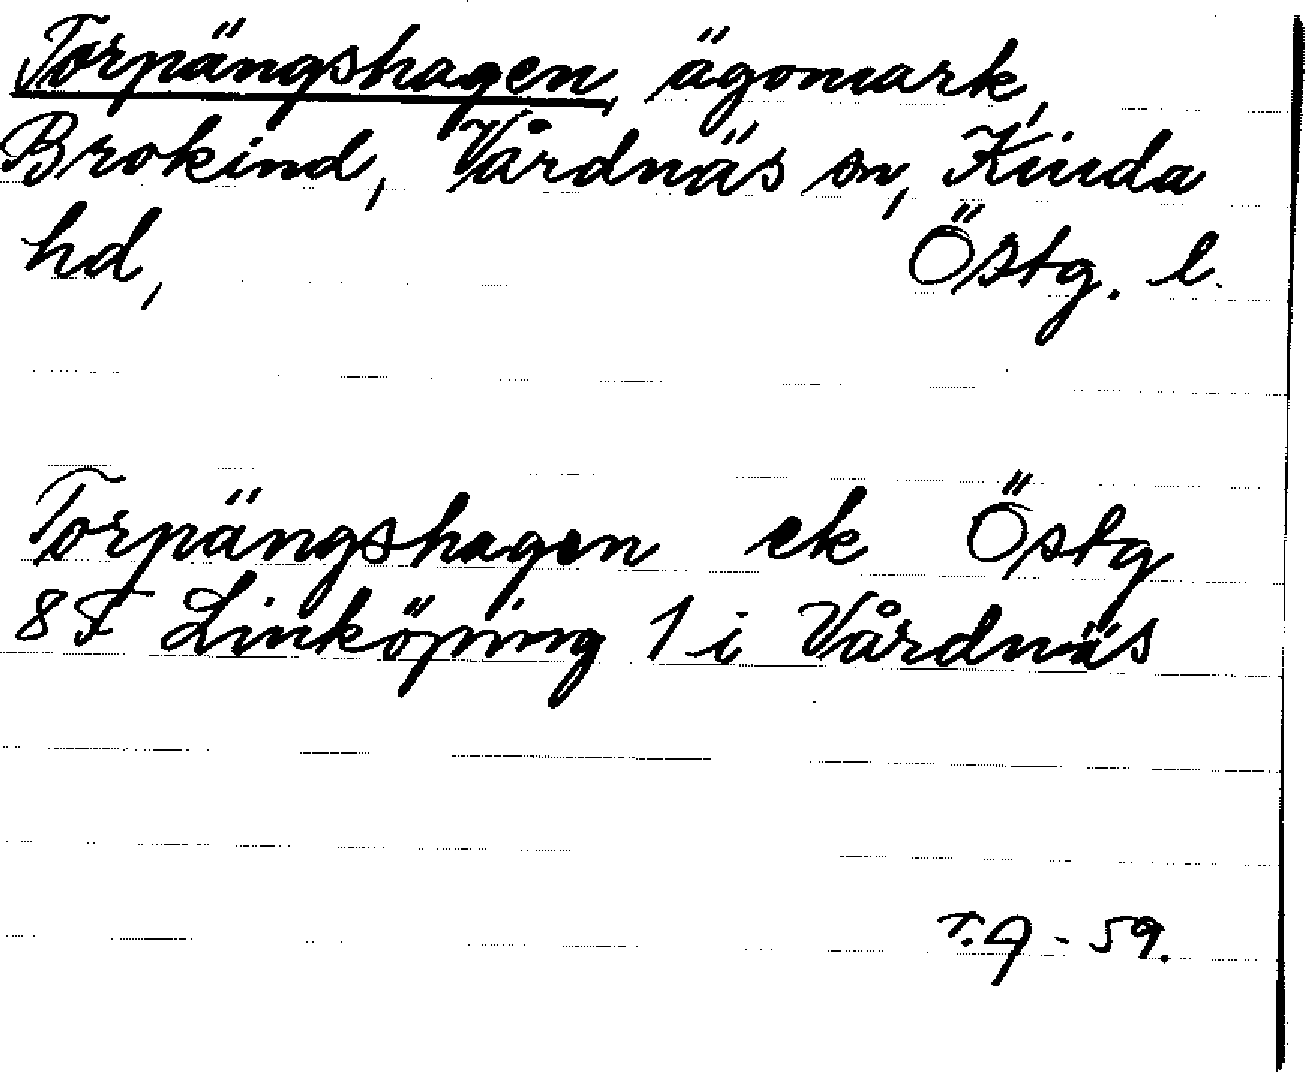 Torpängshagen, ägomark,
Brokind, Vårdnäs sn, Kinda
hd, Östg. l.
Torpängshagen ek Östg
8F Linköping 1 i Vårdnäs
T.A - 59.